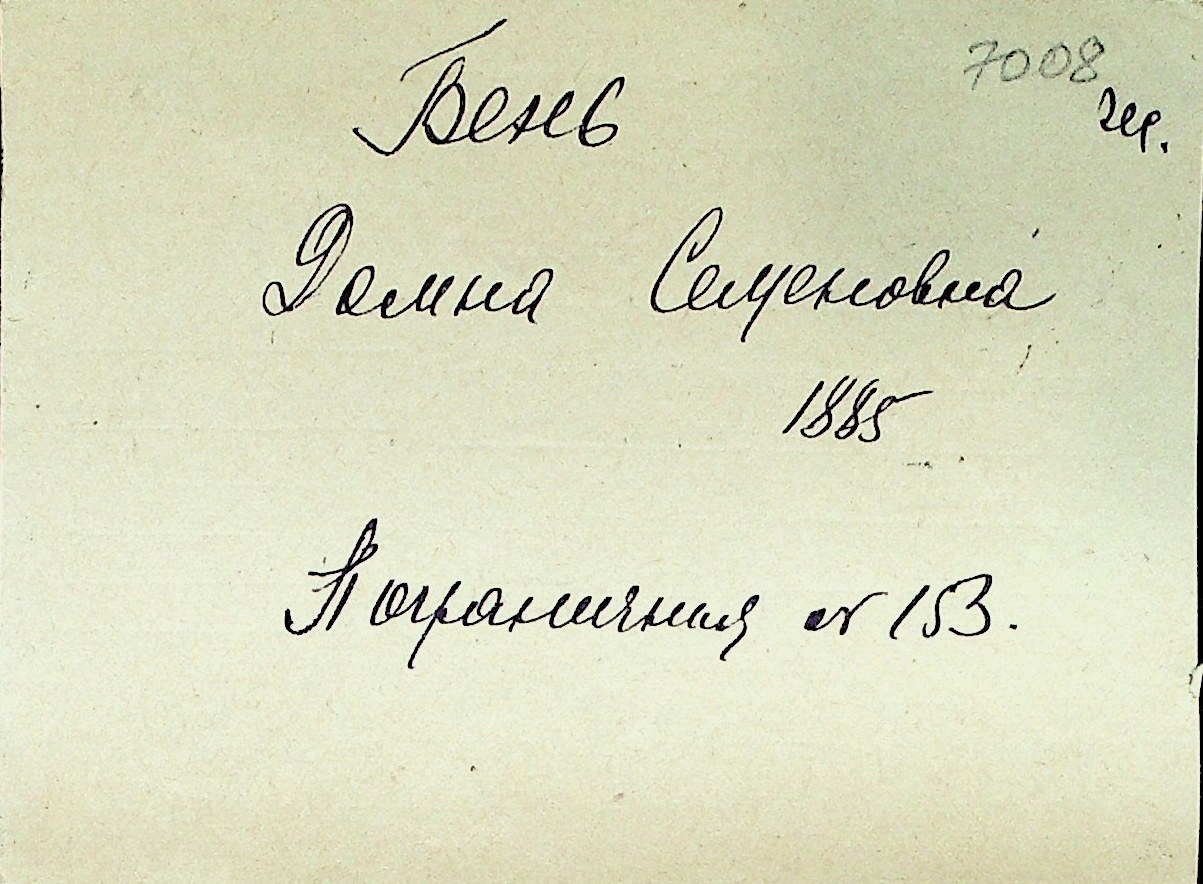 7008
Бень
Домна Семеновна
1885
Пограничная № 153.